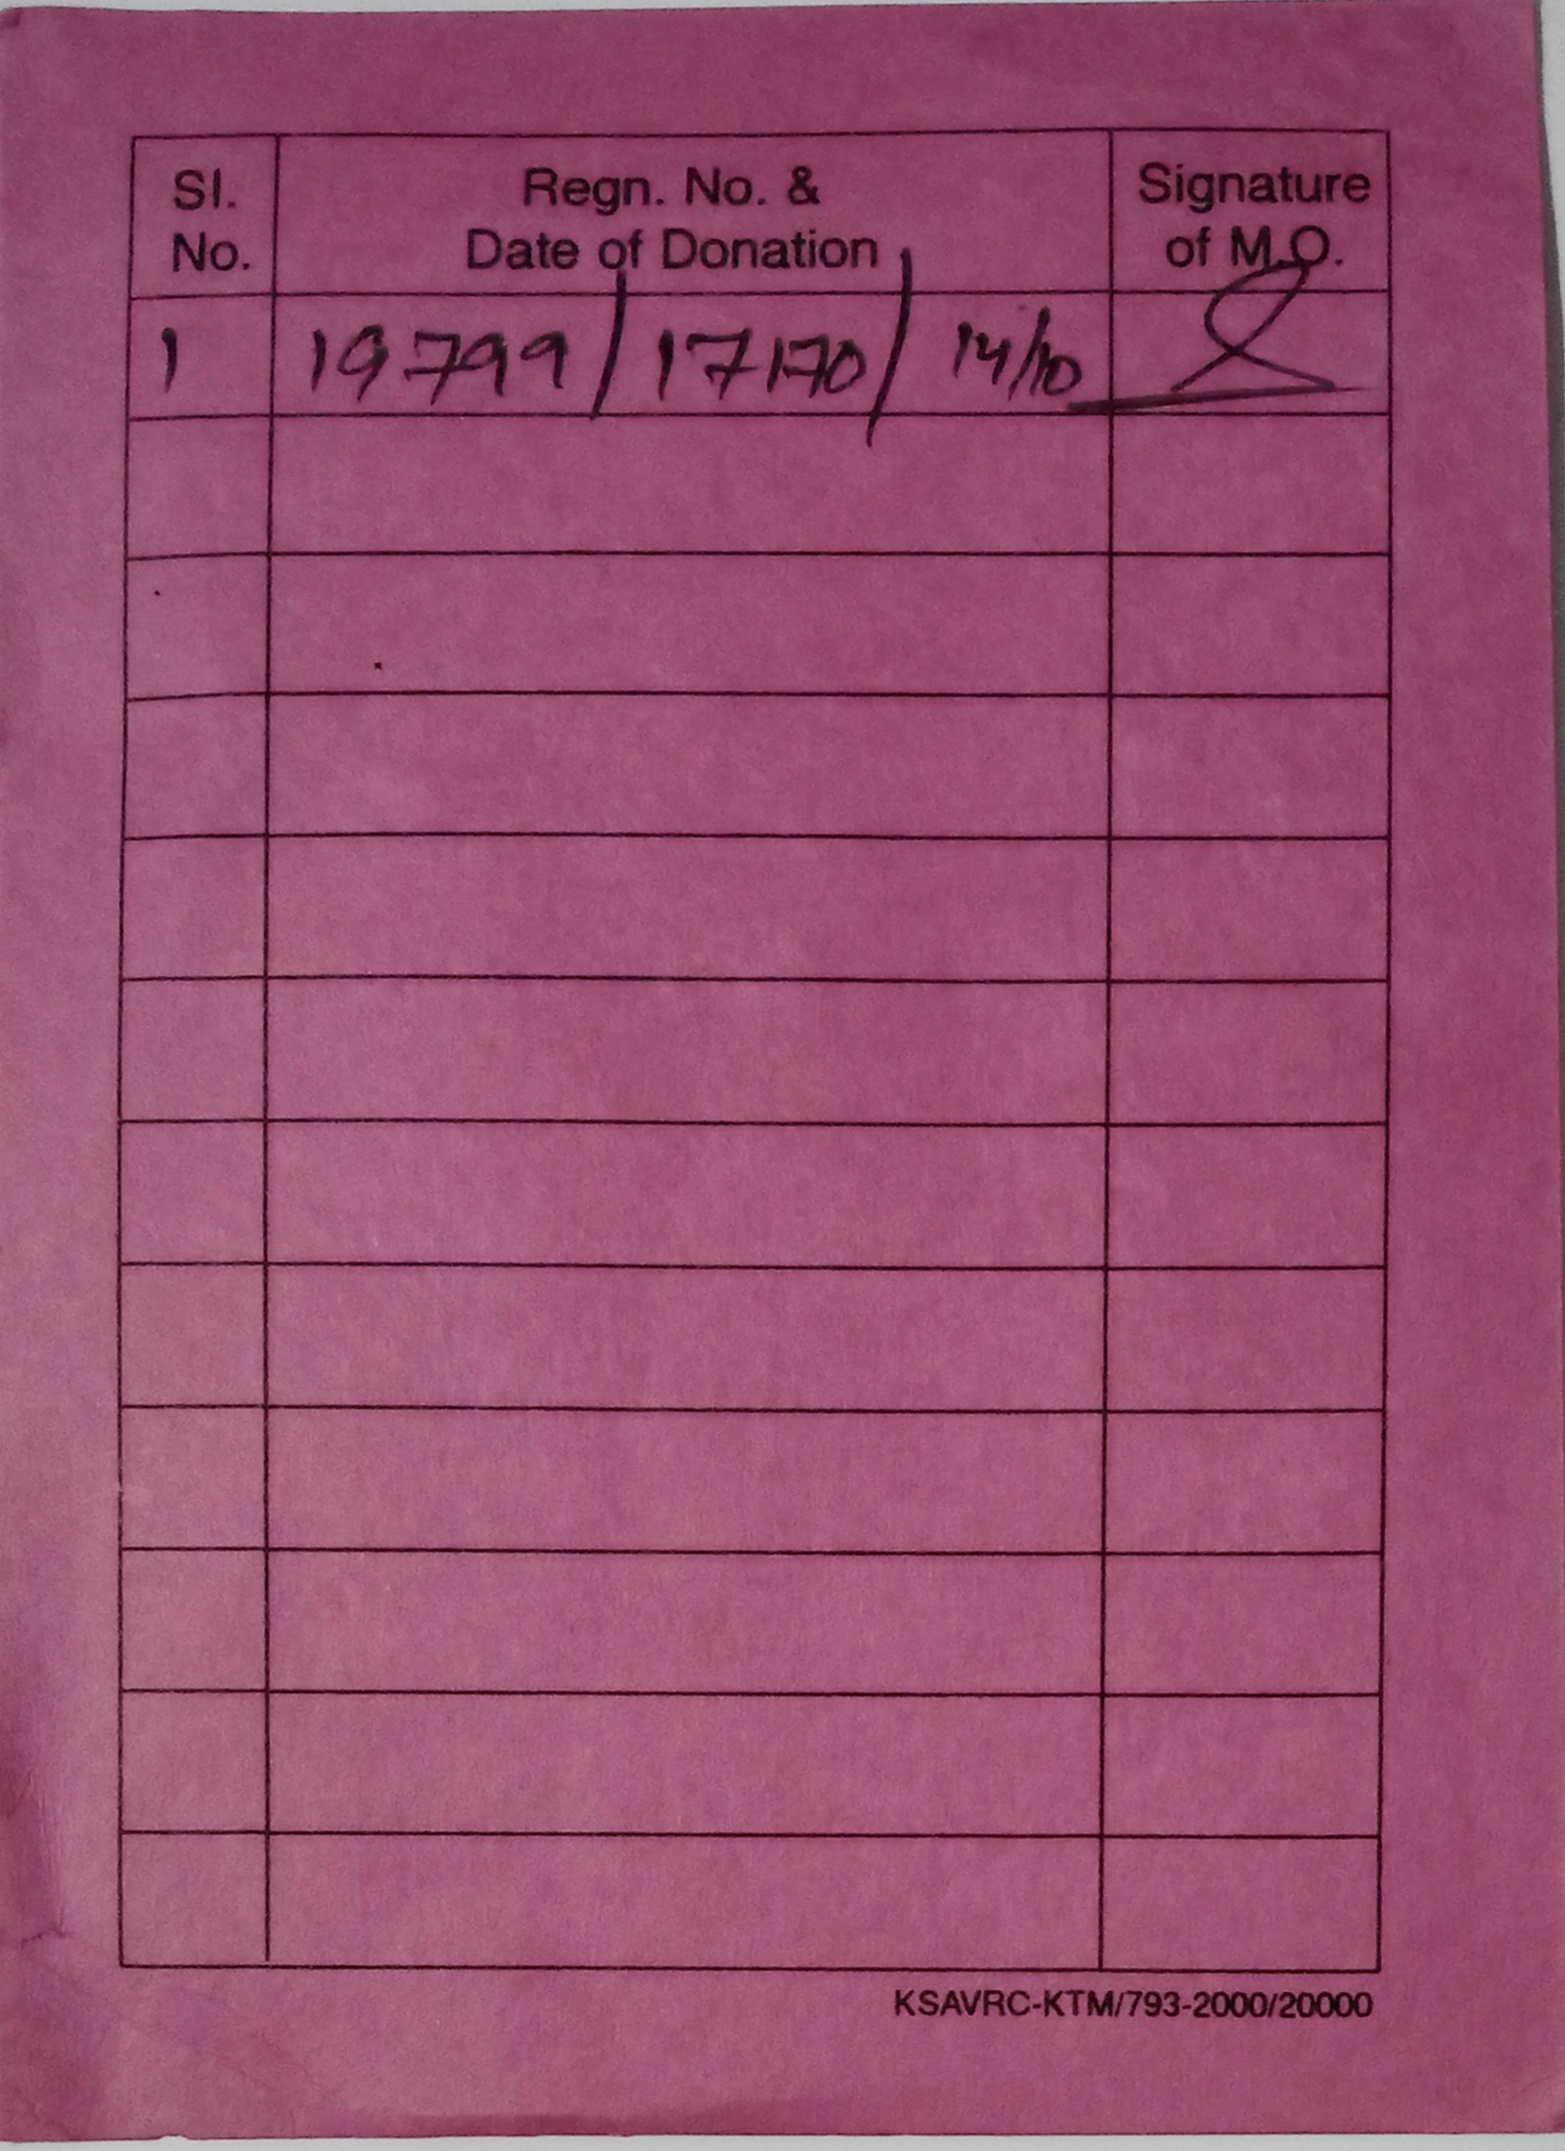 Sl. No.
Regn. No. &
Date of Donation
Signature
of M.O.
1 19799/17170/14/10
KSAVRC-KTM/793-2000/20000